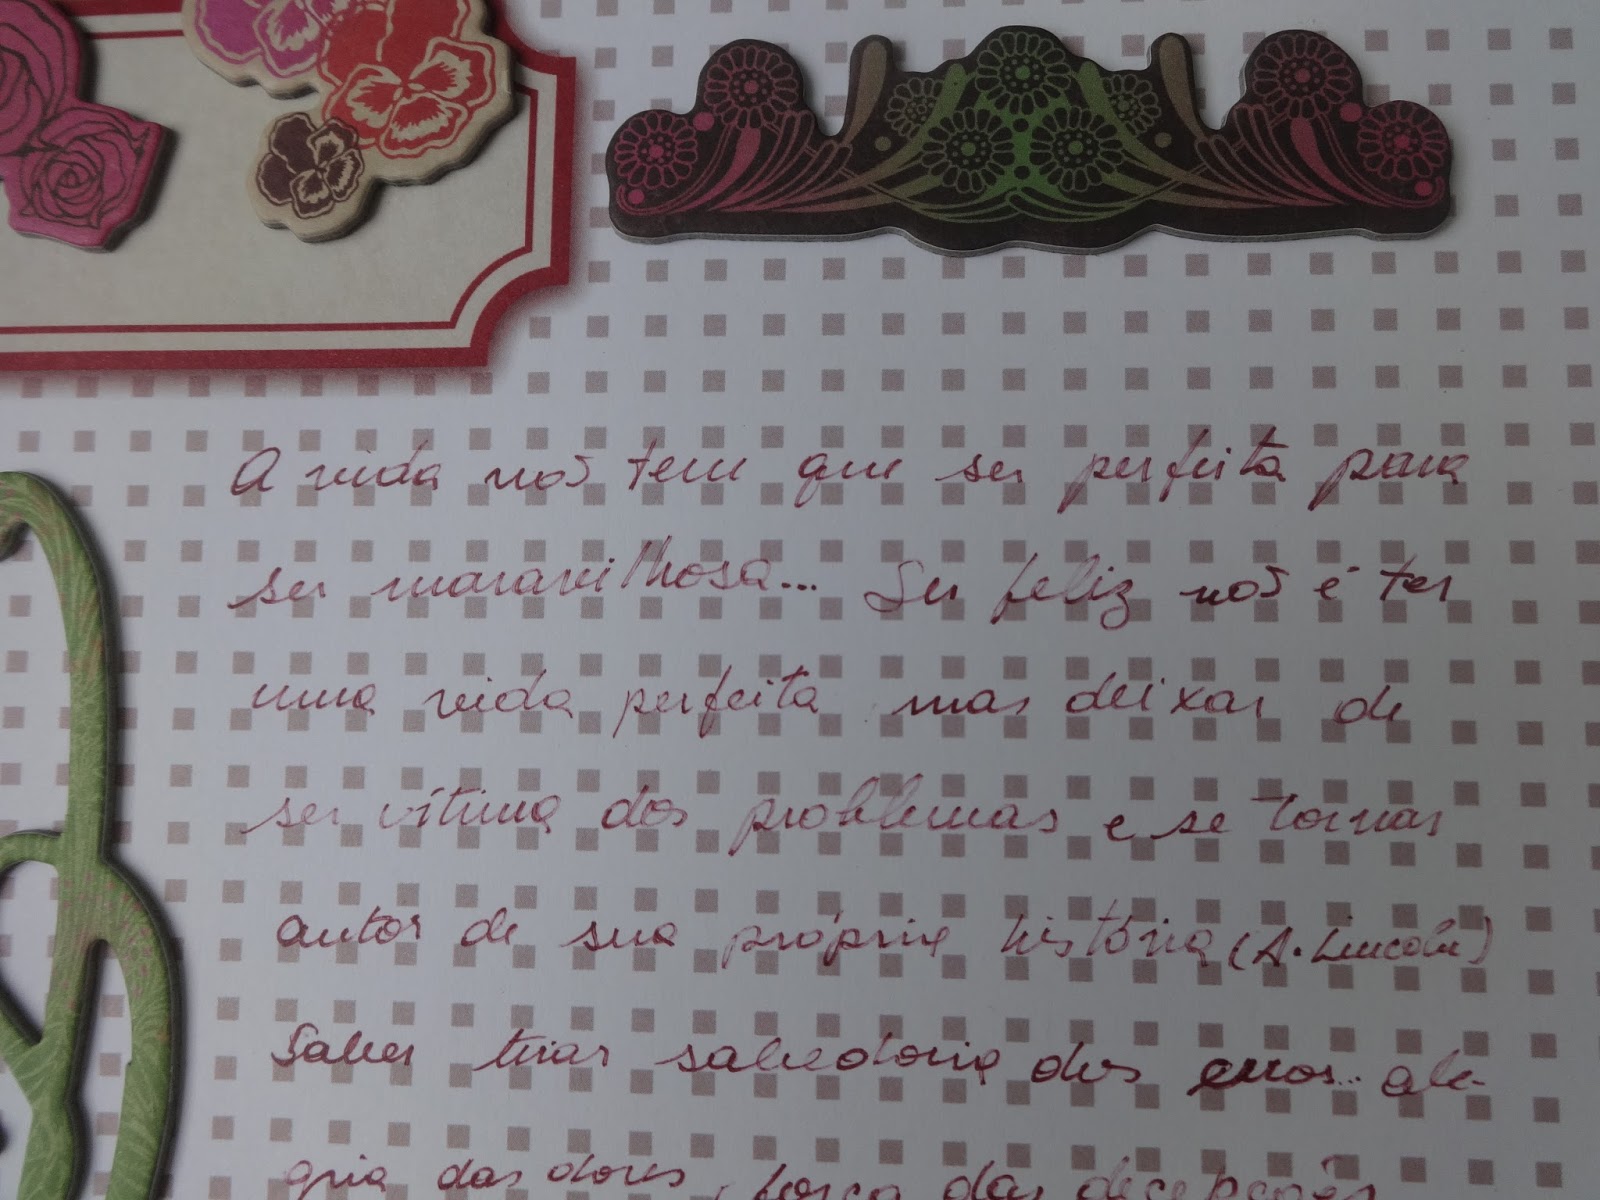 A vida não tem que ser perfeita para
ser maravilhosa... Ser feliz não é ter
uma vida perfeita mas deixar de
ser vítima dos problemas e se tornar
autor de sua própria história (A. Lincoln)
Saber tirar sabedoria dos erros... ale-
gria das dores, força das decepções